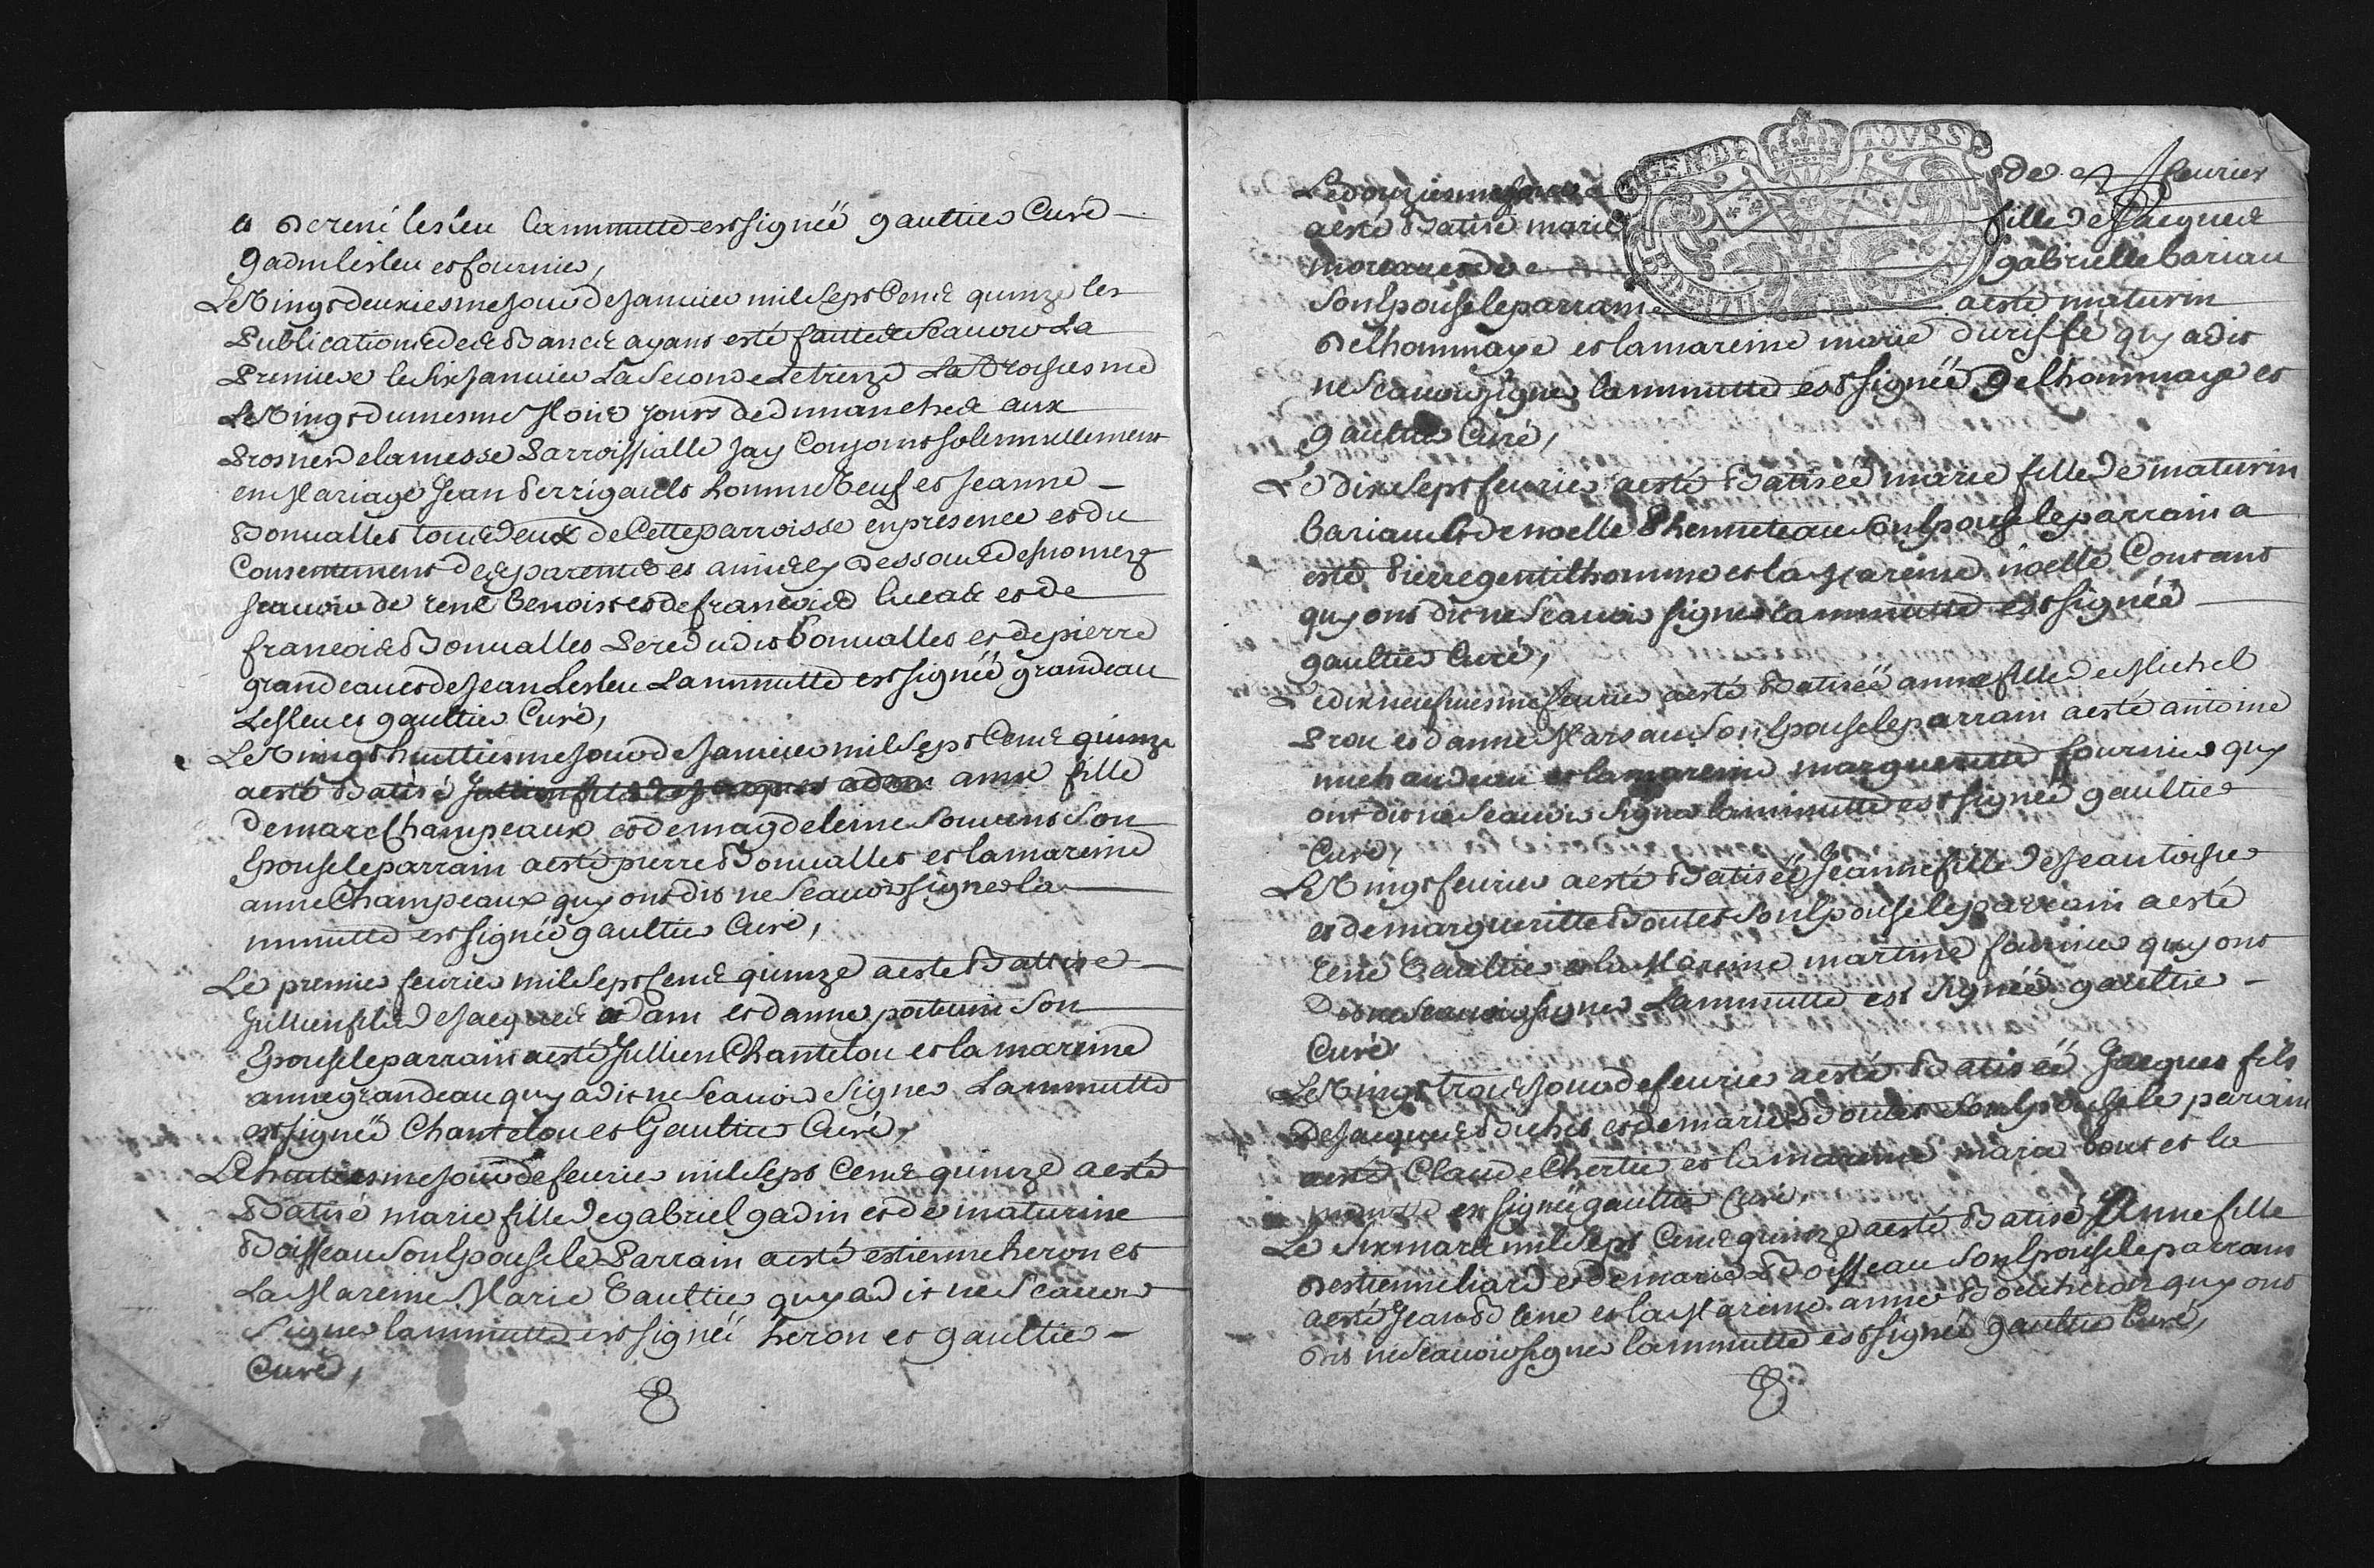 et de rené lesleu la minutte est signéë gaultier Curé
gadin lesleu et fournier,
Le Vingt deuxiesme Jour de Janvier mil sept Cents quinze les
Publications des Bancs ayant esté faittes Scauoir La
Premiere le six Janvier La Seconde Le treize La Troisiesme
Le Vingt du mesme Mois jours de dimanches aux
Prosnes de la messe Parroissialle Jay Conjoint solemnellement
en Mariage Jean Perrigault homme Veuf et Jeanne
Bonualles tous Deux de Cette parroisse en presence et du
Consentement des parents et amis cy Dessous Desnomez
scauoir de rené benoist et de francois lucas et de
francois Bonualles Pere dudit bonualles et de pierre
grandeau et de Jean Lesleu La minutte est signéë grandeau
Lesleu et gaultier Curé,
Le Vingt huittiesme Jour de Januier mil Sept Cents quinze
a esté Batisé anne fille
de marc Champeaux et de magdeleine Souuent Son
Epouse le parrain a esté pierre Bonualles et la mareine
anne Champeaux quy ont dit ne Scauoir signer la
minutte est signéë gaultier Curé,
Le premier feurier mil Sept Cents quinze a esté Battisé
Jullien fils de Jacques adam et d anne poteuin Son
Epouse le parrain a esté Jullien Chantelou et la mareine
anne grandeau quy a dit ne Scauoir Signer La minutte
est signéë Chantelou et Gaultier Curé,
Le huitiesme jour de feurier mil Sept Cents quinze a esté
Batisé marie fille de gabriel gadin et de maturine
Boisseau Son Epouse le Parrain a esté estienne heron et
La Mareine Marie Gaultier quy a dit ne Scauoir
Signer la minutte est signéë heron et gaultier
Curé,
Le douziesme jour de feurier
a esté Batisé marie fille de Jacques
moreau et de gabrielle bariau
Son Epouse le parrain a esté maturin
Delhommaye et la mareine marie duriffé quy a dit
ne Scauoir signer la minutte est signéë Delhommaye et
gaultier Curé,
Le dix Sept feurier a esté Batiséë marie fille de maturin
bariau et de noelle Phenneteau Son Epouse le parrain a
esté Pierre gentilhomme et la Mareine noelle Constant
quy ont dit ne Scauoir signer la minutte est signéë
gaultier Curé,
Le dix neufuiesme feurier a esté Batiséë anne fille de Michel
Prou et d anne Marsau Son Epouse le parrain a esté antoine
michaudeau et la mareine margueritte fournier quy
ont dit ne Scauoir signer la minutte est signéë gaultier
Curé,
Le Vingt feurier a esté Batiséë Jeanne fille de Jean toisier
et de margueritte Boutet Son Epouse le parrain a esté
René Gaultier et la Mareine martine fournier quy ont
Dit ne Scauoir signer La minutte est signéë gaultier
Curé
Le Vingt trois Jour de feurier a esté Batiséë Jacques fils
De Jacques Buchet et de marie Boutet Son Epouse le parain
a esté Claude Chertier et la mareine maria bout et la
minutte est signéë gaultier Curé,
Le Six mars mil Sept Cents quinze a esté Batisé Anne fille
D estienne liard et de marie Boisseau Son Epouse le parrain
a esté Jean Blene et la Mareine anne Boucheron quy ont
dit ne Scauoir signer la minutte est signéë gaultier Curé,
GEN DE TOVRS